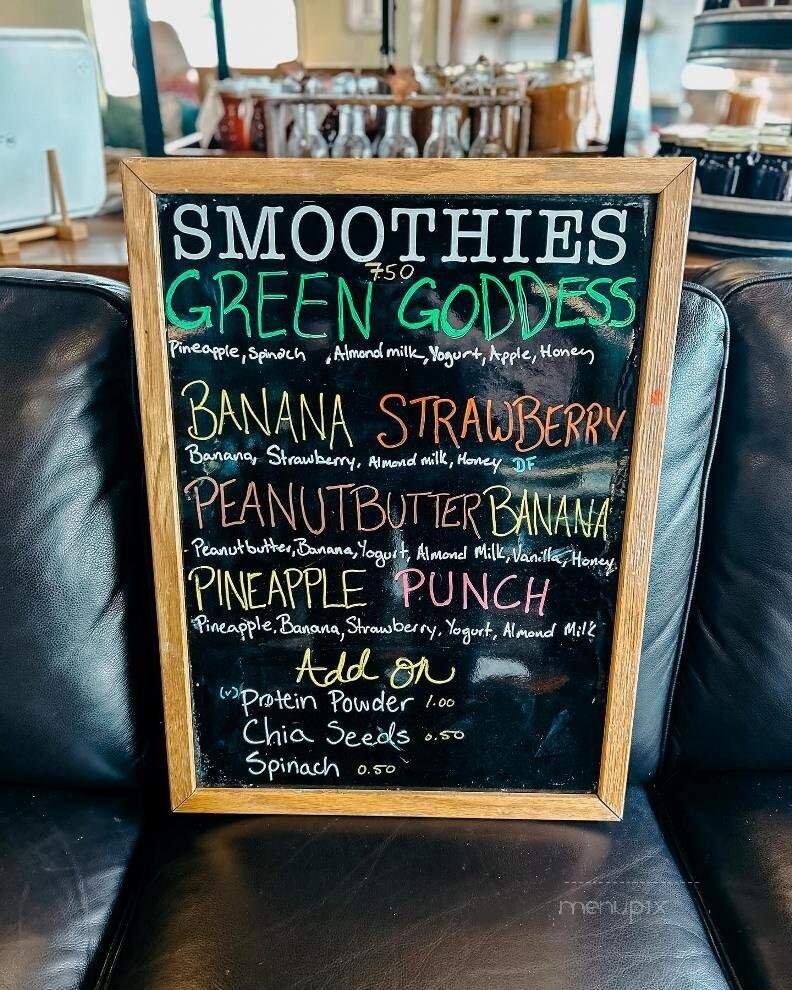 SMOOTHIES
7.50
GREEN GODDESS
Pineapple, Spinach , Almond milk, Yogurt, Apple, Honey
BANANA STRAWBERRY
Banana, Strawberry, Almond milk, Honey DF
PEANUTBUTTER BANANA
Peanutbutter, Banana, Yogurt, Almond Milk, Vanilla, Honey
PINEAPPLE PUNCH
Pineapple, Banana, Strawberry, Yogurt, Almond Milk
Add on
(v) Protein Powder 1.00
Chia Seeds 0.50
Spinach 0.50
menupix